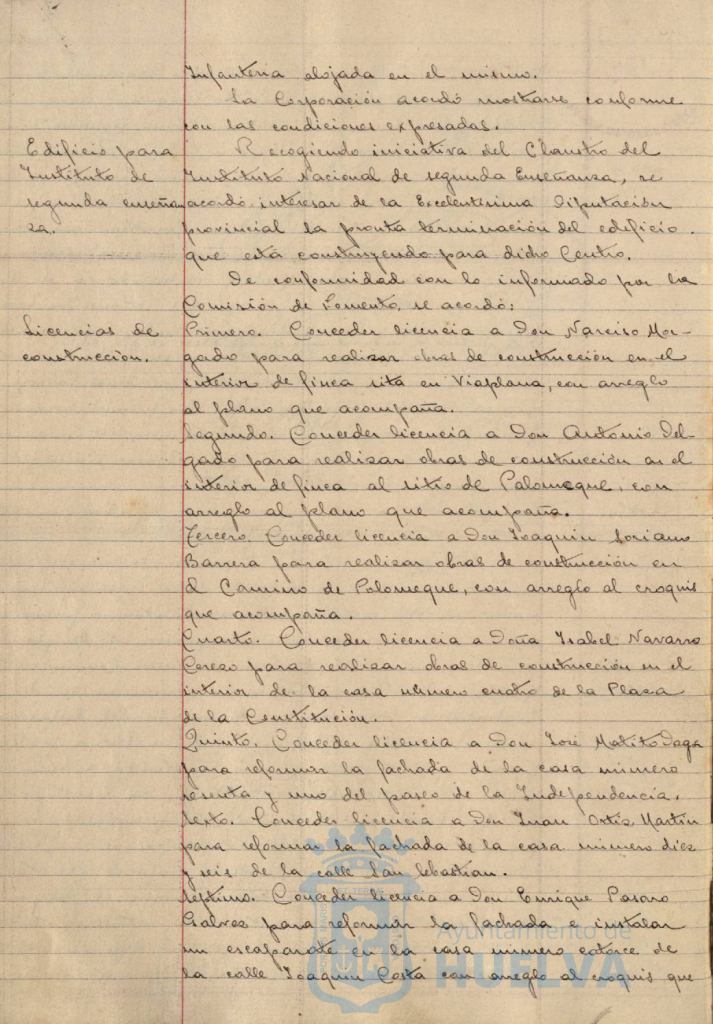 Infanteria alojada en el mismo.
La Corporación acordó mostrarse conforme
con las condiciones expresadas.
Edificio para
Instituto de
segunda enseñan
za.
Recogiendo iniciativa del Claustro del
Instituto Nacional de segunda Enseñanza, se
acordó interesar de la Excelentísima Diputación
provincial la pronta terminación del edificio
que está construyendo para dicho Centro.
De conformidad con lo informado por la
Comisión de Fomento, se acordó:
Licencias de
construccion.
Primero. Conceder licencia a Don Narciso Mor-
gado para realizar obras de construcción en el
interior de finca sita en Viaplana, con arreglo
al plano que acompaña.
Segundo. Conceder licencia a Don Antonio Del-
gado para realizar obras de construcción en el
interior de finca al sitio de Palomeque, con
arreglo al plano que acompaña.
Tercero. Conceder licencia a Don Joaquin Soriano
Barrera para realizar obras de construcción en
el Camino de Palomeque, con arreglo al croquis
que acompaña.
Cuarto. Conceder licencia a Doña Isabel Navarro
Cerezo para realizar obras de construcción en el
interior de la casa número cuatro de la Plaza
de la Constitución.
Quinto. Conceder licencia a Don José Matito
para reformar la fachada de la casa número
sesenta y uno del paseo de la Independencia.
Sexto. Conceder licencia a Don Juan Ortiz Martin
para reformar la fachada de la casa número diez
y seis de la calle San Sebastian.
Séptimo. Conceder licencia a Don Enrique
Galvez para reformar la fachada e instalar
un escaparate en la casa número catorce de
la calle Joaquin Costa con arreglo al croquis que
Ayuntamiento de
HUELVA